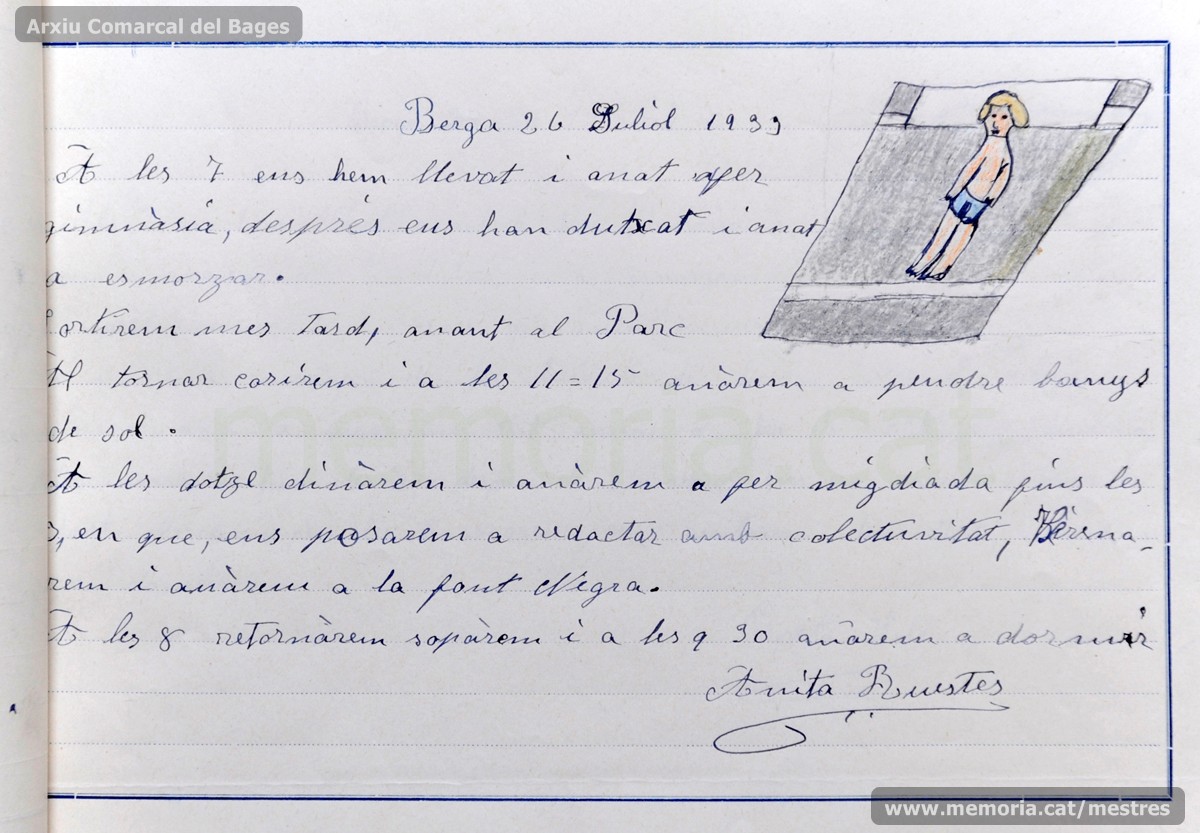 Arxiu Comarcal del Bages
Berga 26 Juliol 1933
A les 7 ens hem llevat i anat a fer
gimnàsia, després ens han dutxat i anat
a esmorzar.
ortirem mes tard, anant al Parc
Al tornar cosirem i a les 11=15 anàrem a pendre banys
de sol.
A les dotze dinàrem i anàrem a fer migdiada fins les
3, en que, ens posarem a redactar amb colectivitat, Berena-
rem i anàrem a la font Negra.
A les 8 retornàrem sopàrem i a les 9 30 anàrem a dormir
Anita Ruestes
memoria.cat
www.memoria.cat/mestres